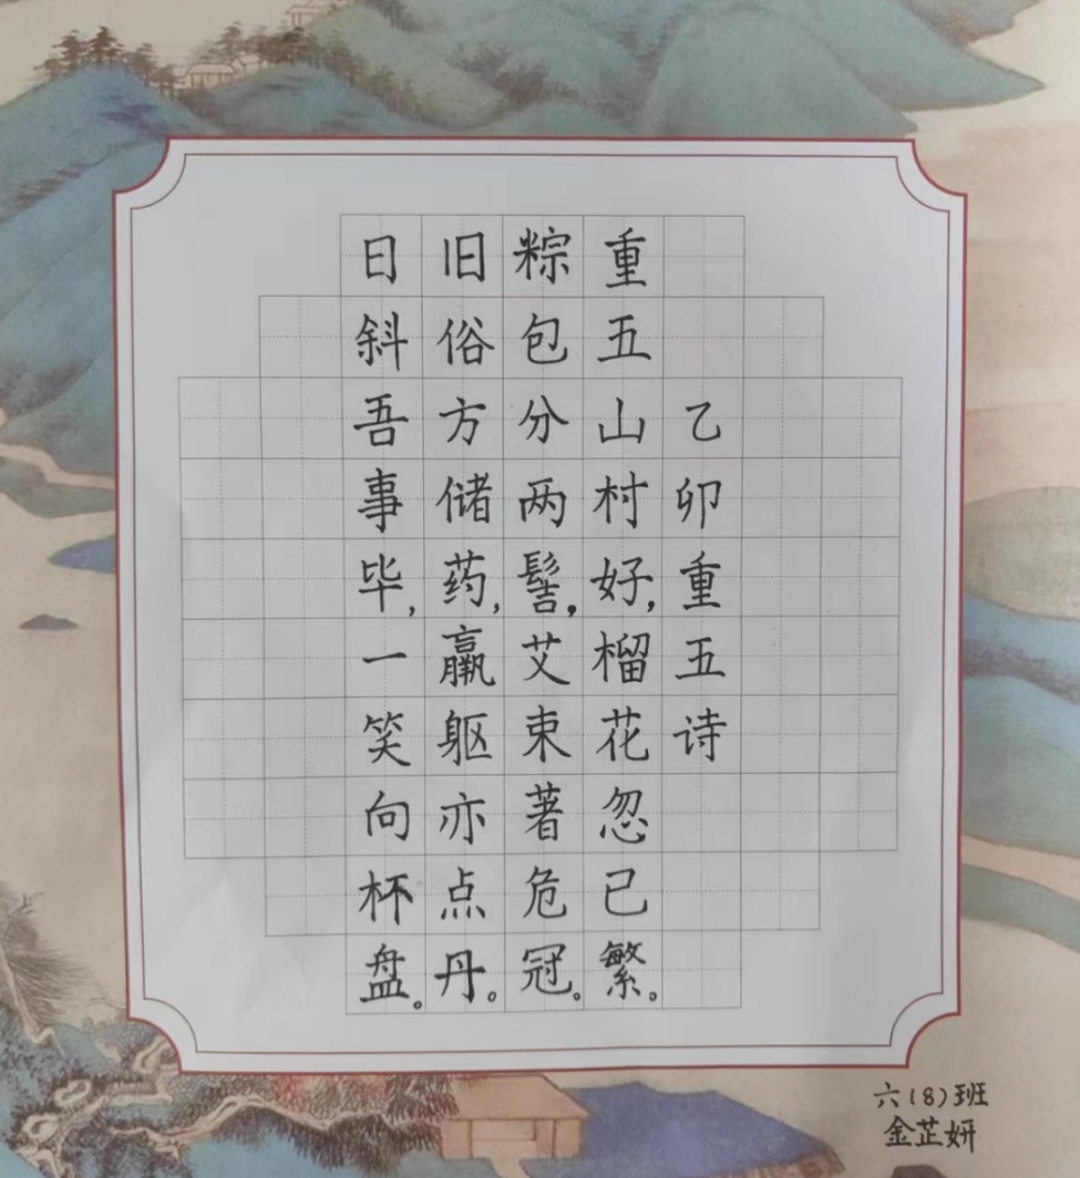 乙卯重五诗
重五山村好，榴花忽已繁。
粽包分两髻，艾束著危冠。
旧俗方储药，羸躯亦点丹。
日斜吾事毕，一笑向杯盘。
六（8）班
金芷妍